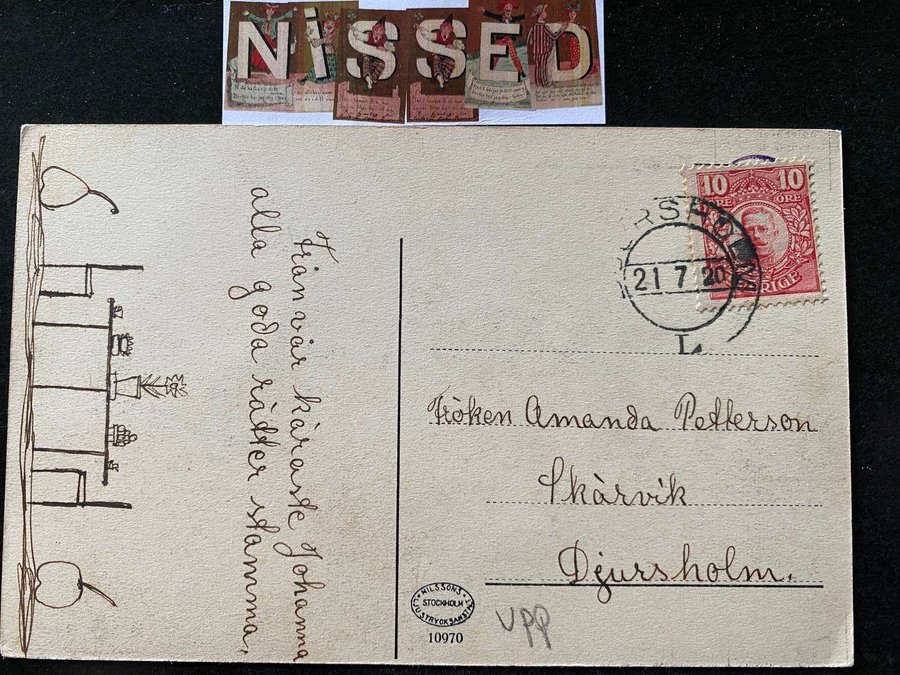 NiSSED
Från vår käraste Johanna
alla goda rätter stamma,
10 10
ÖRE ÖRE
SVERIGE
DJURSHOLM
21 7 20
L
Fröken Amanda Petterson
Skärvik
Djursholm.
NILSSONS
STOCKHOLM
LJUSTRYCKSANSTALT
10970
upp